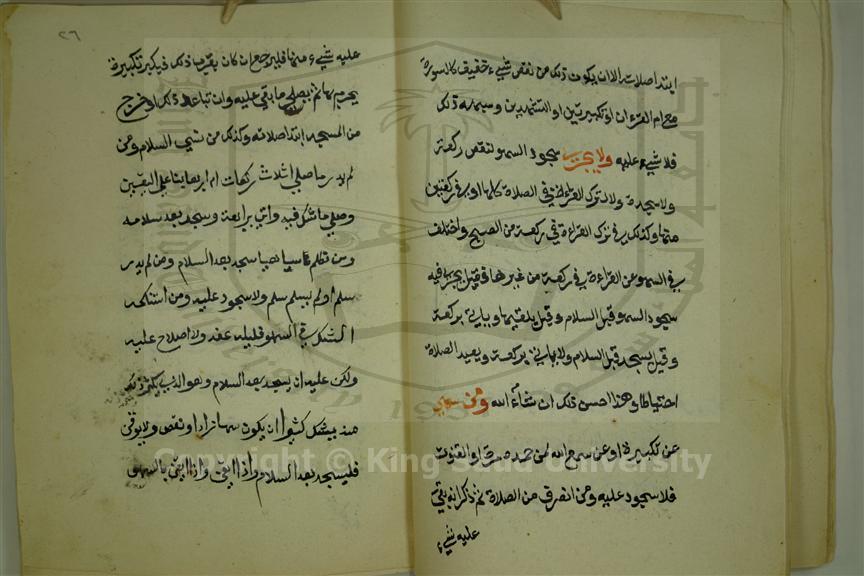 ابتدا صلاته الا ان يكون ذلك من نقص شيء خفيف كالسورة
مع ام القرءان او تكبيرتين او التشهدين وشبه ذلك
فلا شيء عليه ولا يجزي سجود السهو لنقص ركعة
ولا سجدة ولا لترك القراءة في الصلاة كلها او في ركعتين
منها وكذلك في ترك القراءة في ركعة من الصبح واختلف
في السهو عن القراءة في ركعة من غيرها فقيل يجزي فيه
سجود السهو قبل السلام وقيل يلغيها وياتي بركعة
وقيل يسجد قبل السلام ولا ياتي بركعة ويعيد الصلاة
احتياطا وهذا احسن ذلك ان شاء الله ومن سهى
عن تكبيرة او عن سمع الله لمن حمده مرة او القنوت
فلا سجود عليه ومن انصرف من الصلاة ثم ذكر انه بقي
عليه شيء
٢٦
عليه شيء منها فليرجع ان كان بقرب ذلك فيكبر تكبيرة
يحرم بها ثم يصلي ما بقي عليه وان تباعد ذلك او خرج
من المسجد ابتدا صلاته وكذلك من نسي السلام ومن
لم يدر ما صلى اثلاث ركعات ام اربعا بنا على اليقين
وصلى ما شك فيه واتى برابعة وسجد بعد سلامه
ومن تكلم ساهيا سجد بعد السلام ومن لم يدر
سلم او لم يسلم سلم ولا سجود عليه ومن استنكحه
الشك في السهو فليله عنه ولا اصلاح عليه
ولكن عليه ان يسجد بعد السلام وهو الذي يكثر ذلك
منه يشك كثيرا ان يكون سها زاد او نقص ولا يوقن
فليسجد بعد السلام واذا ايقن واذا ايقن بالسهو
Copyright © King Saud University
1957